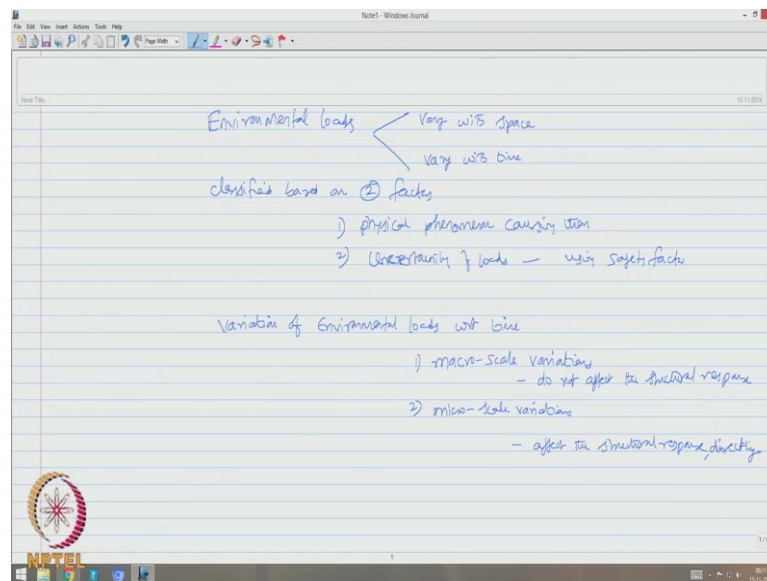 Note1 - Windows Journal
File Edit View Insert Actions Tools Help
Page Width
Note Title
15-11-2016
Environmental loads
vary with space
vary with time
classified based on 2 factors
1) physical phenomenon causing them
2) Uncertainity of loads — using safety factor
Variation of Environmental loads wrt time
1) macro-scale variations
- do not affect the structural response
2) micro-scale variations
- affect the structural response, directly
NPTEL
1
1/1